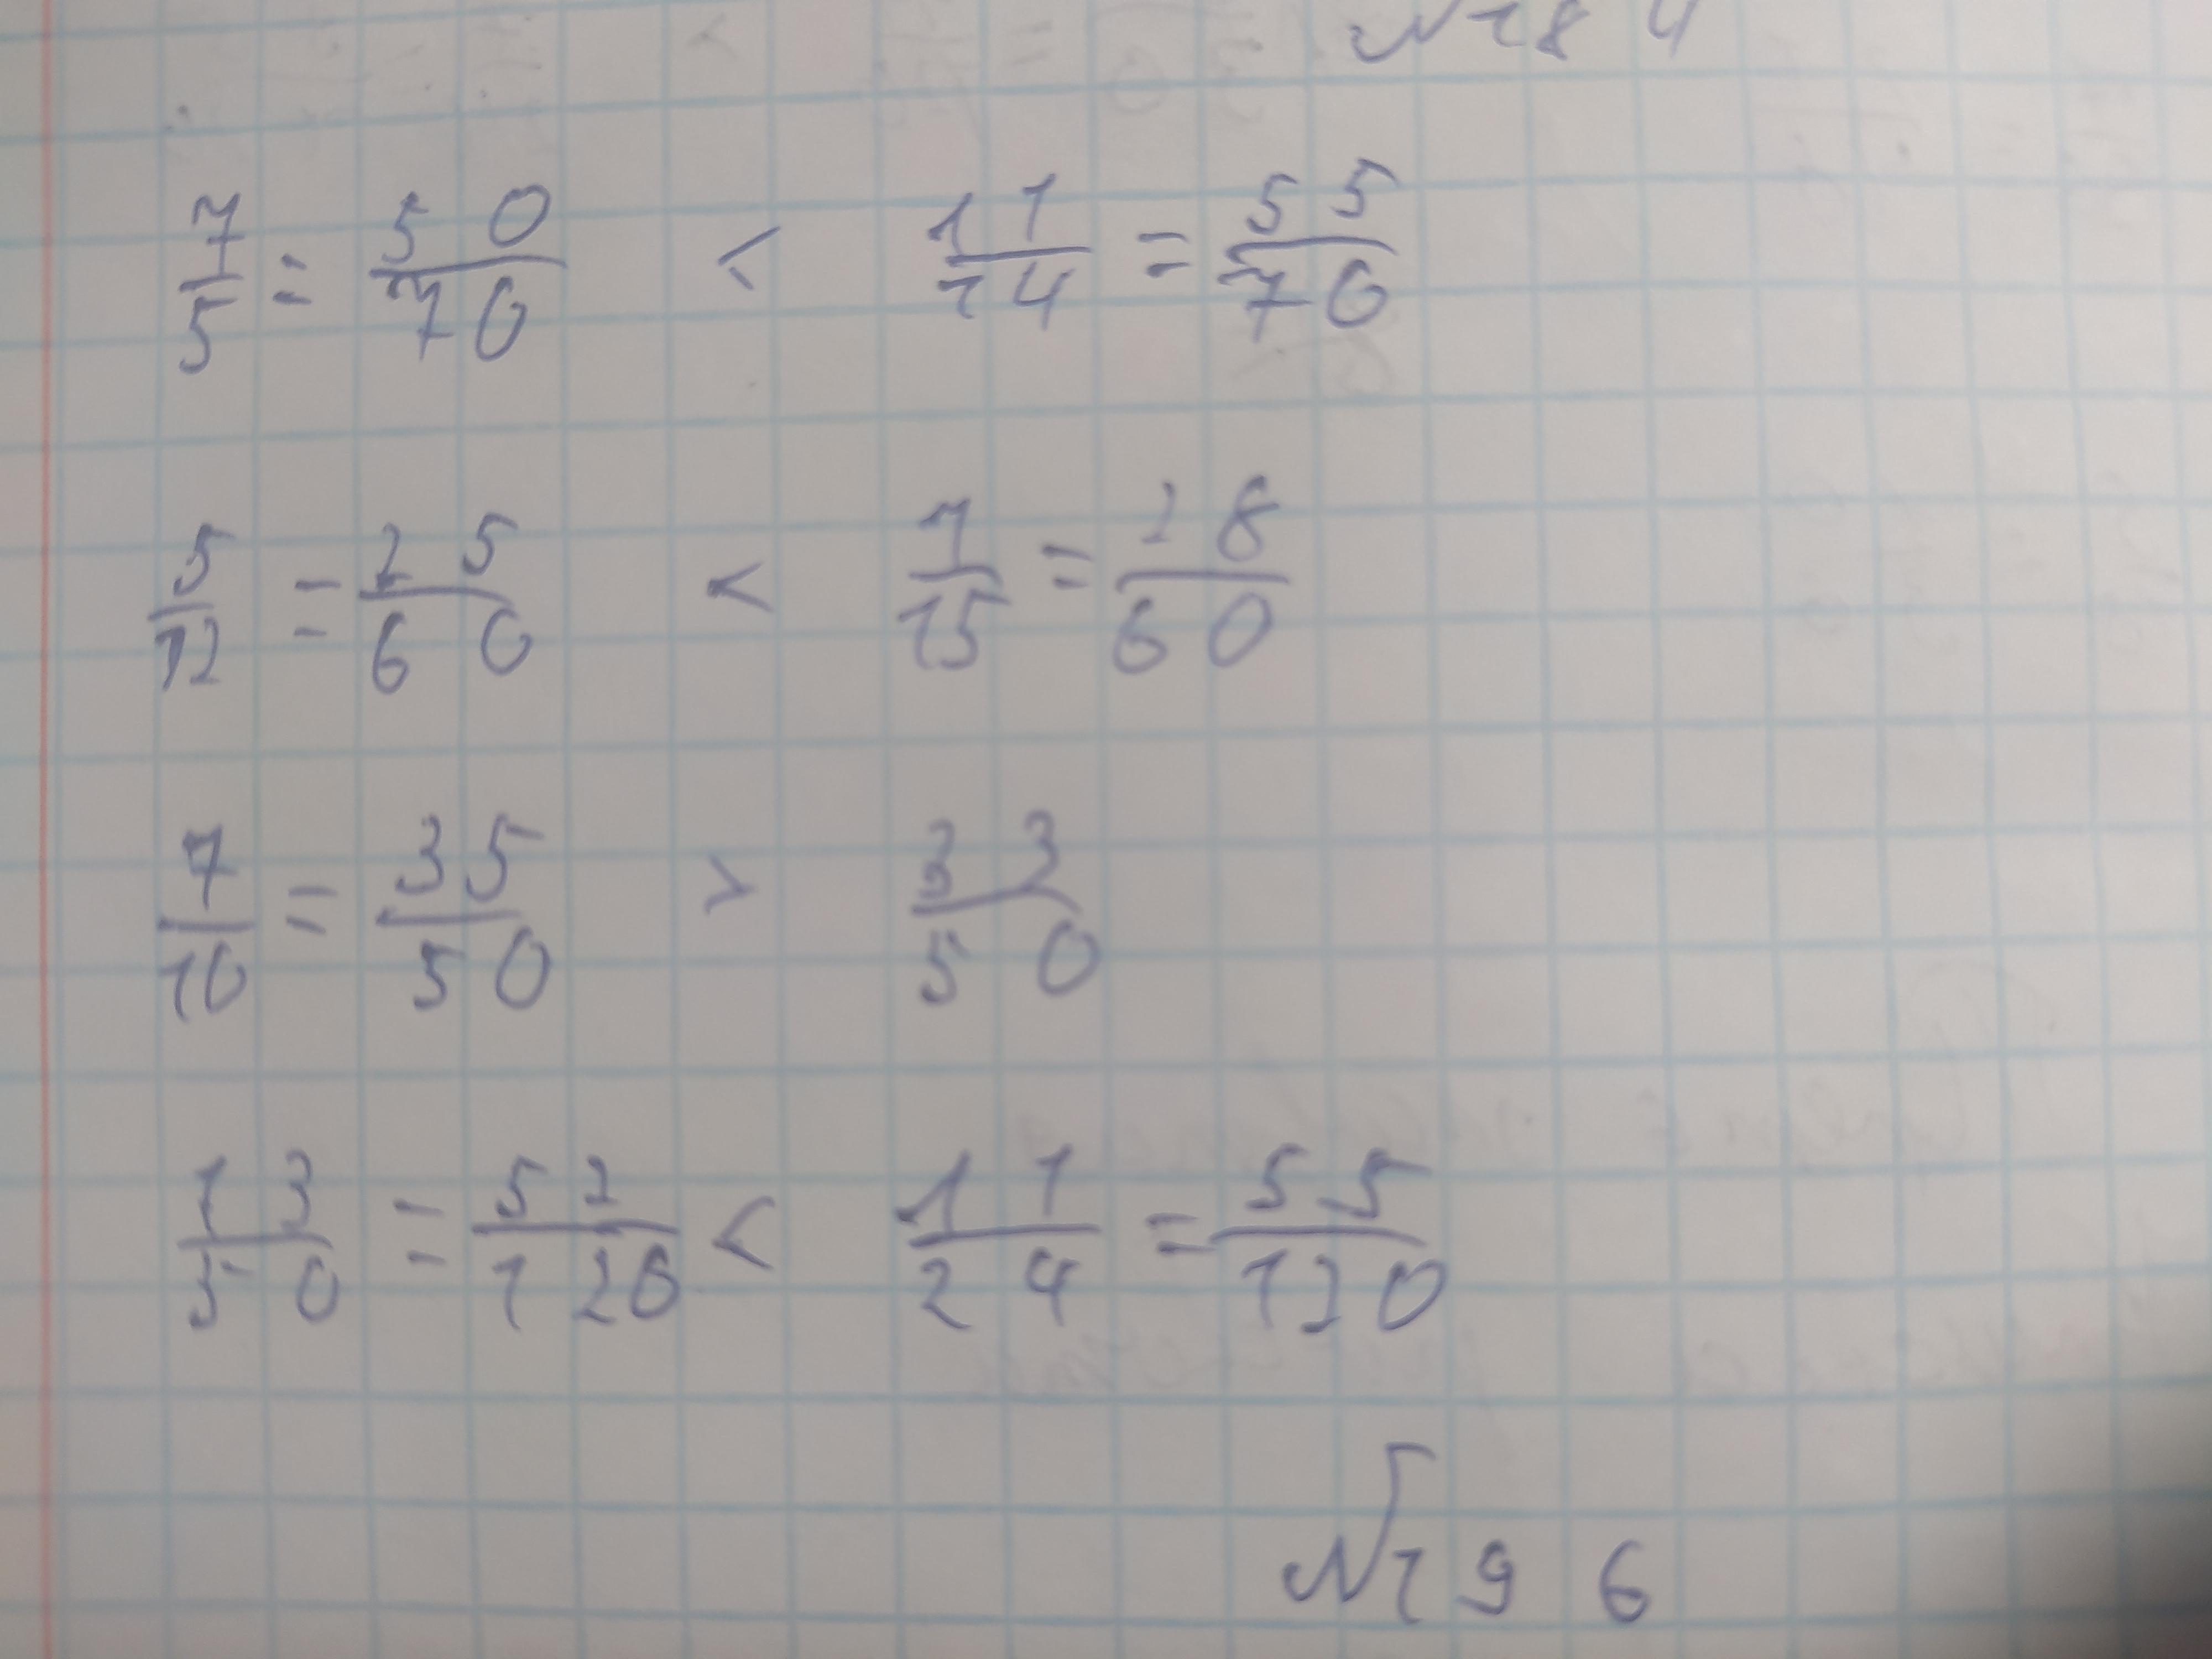 №184
7/5 = 50/70 < 11/14 = 55/70
5/12 = 25/60 < 7/15 = 28/60
7/10 = 35/50 > 33/50
13/30 = 52/120 < 11/24 = 55/120
№196